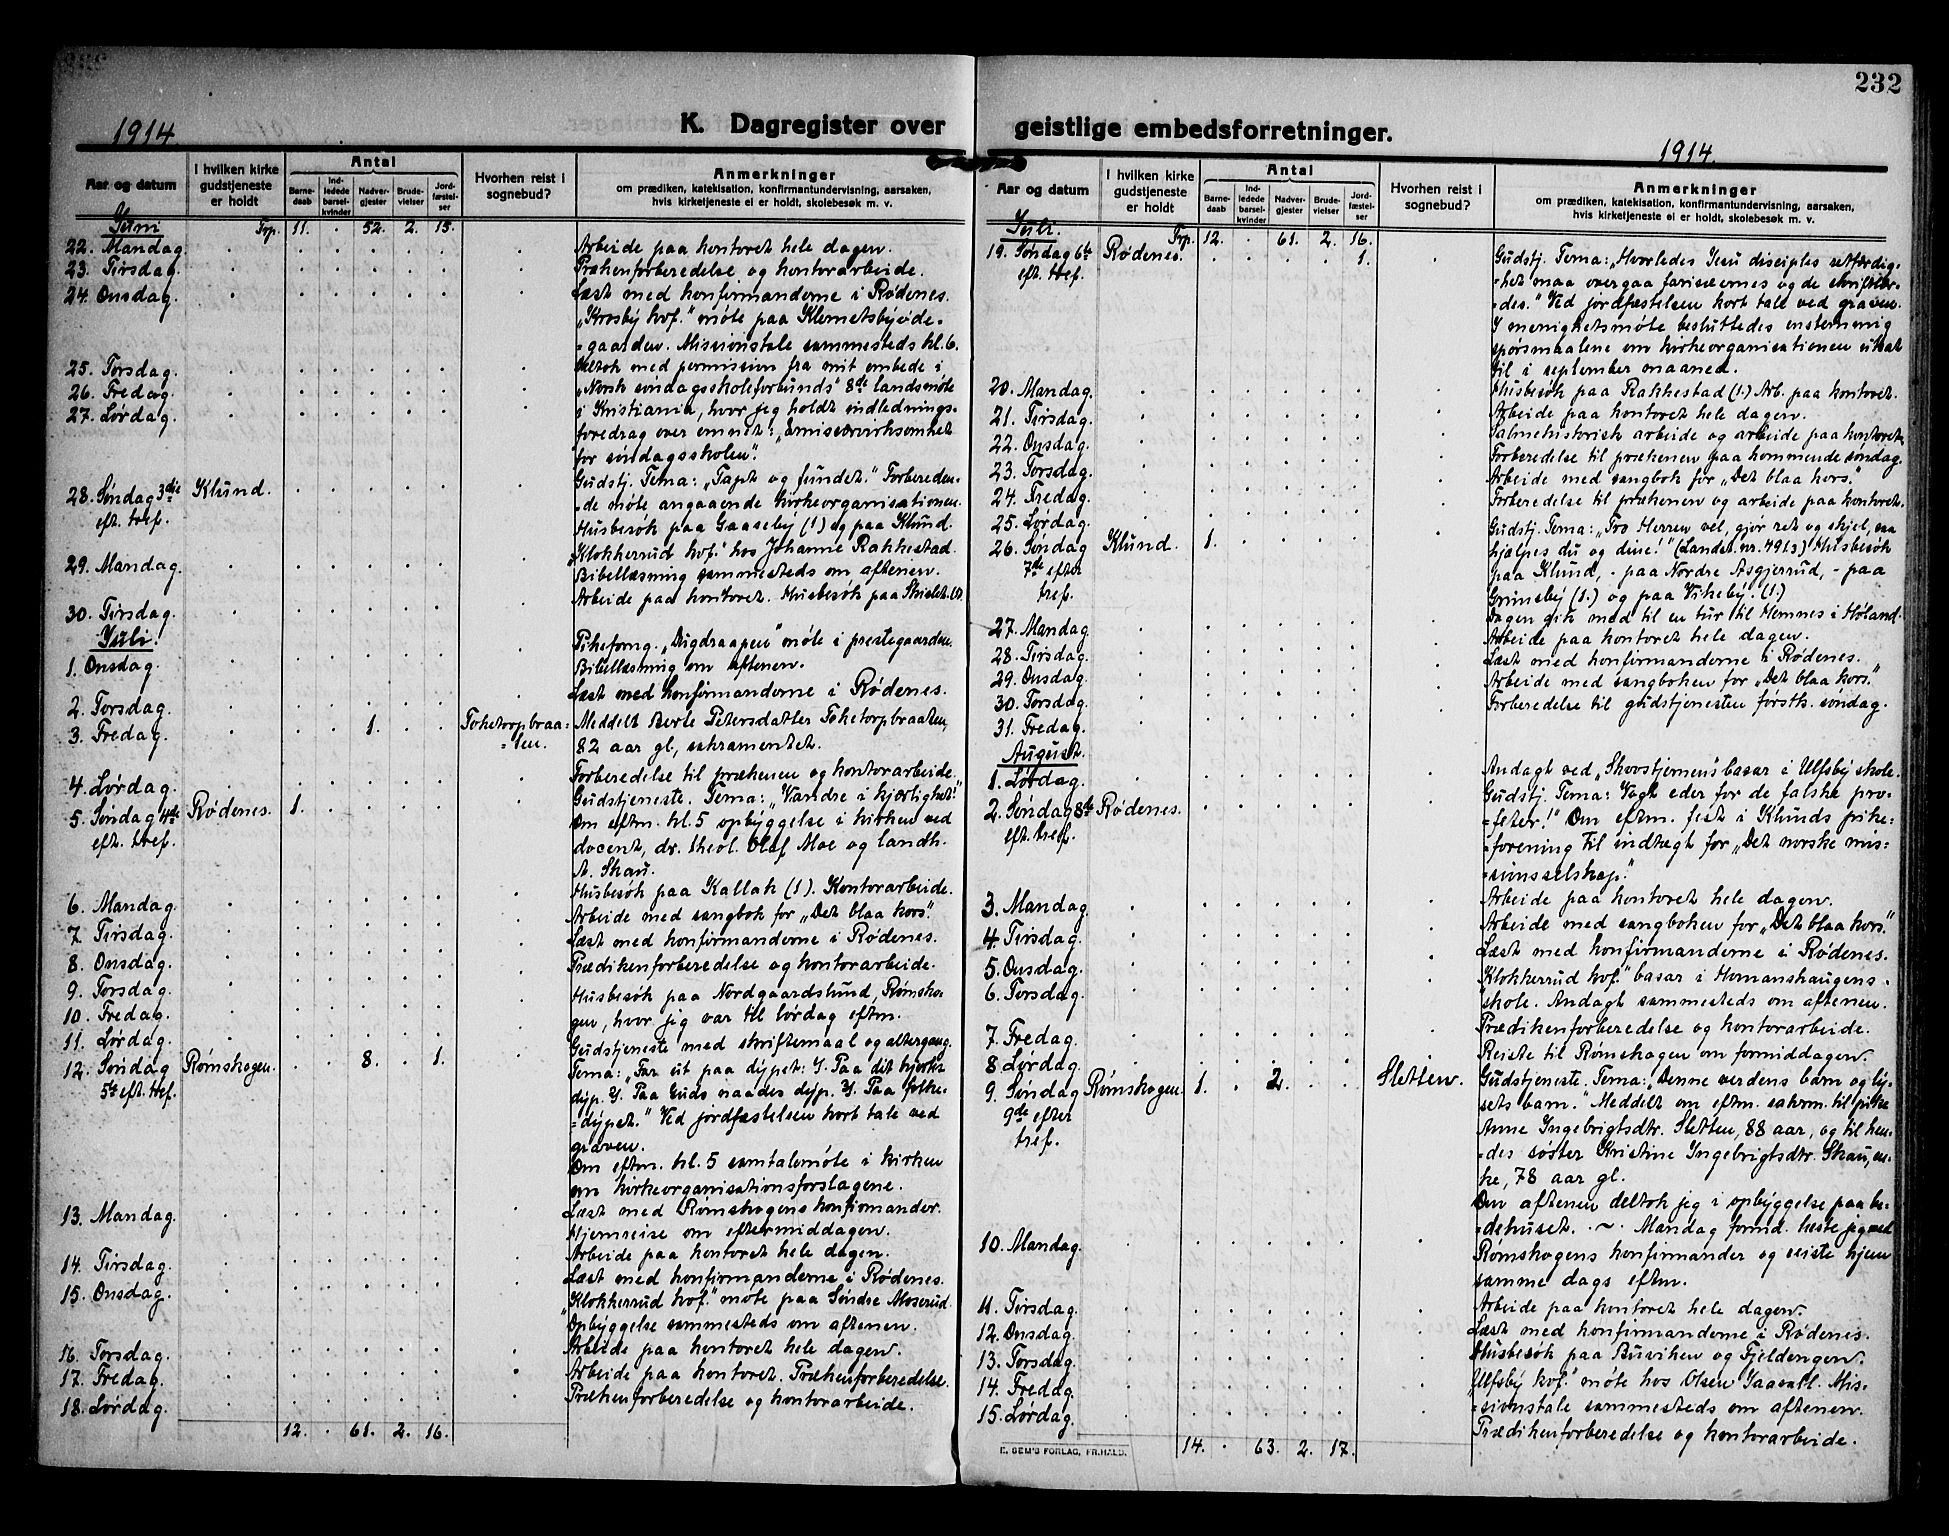 232
1914.
K. Dagregister over
Aar og datum
I hvilken kirke gudstjeneste er holdt
Antal
Barnedaab
Indledede barselkvinder
Nadvergjester
Brudevielser
Jordfæstelser
Hvorhen reist i sognebud?
Anmerkninger
om prædiken, katekisation, konfirmantundervisning, aarsaken,
hvis kirketjeneste ei er holdt, skolebesøk m. v.
Juni Trp. 11. . 52. 2. 15.
22. Mandag. Arbeide paa kontoret hele dagen.
23. Tirsdag. Prækenforberedelse og kontorarbeide.
24. Onsdag. Læst med konfirmanderne i Rødenes.
„Krosby kvf." møte paa Klemetsbyøde-
=gaarden. Missionstale sammesteds kl. 6.
25. Torsdag. Deltok med permission fra mit embede i
26. Fredag. „Norsk søndagsskoleforbunds" 8de landsmøte
27. Lørdag. i Kristiania, hvor jeg holdt indlednings-
foredrag over emnet: „Emissærvirksomhet
for søndagsskolen".
28. Søndag 3die Klund. Gudstj. Tema: „Tapt og fundet." Forbereden-
eft. tref. =de møte angaaende kirkeorganisationen.
Husbesøk paa Gaaseby (1) og paa Klund.
29. Mandag. „Klokkerud kvf." hos Johanne Rakkestad.
Bibellæsning sammesteds om aftenen.
30. Tirsdag. Arbeide paa kontoret. Husbesøk paa
Juli.
1. Onsdag. Pikeforng. „Dugdraapen" møte i prestegaarden.
Bibellæsning om aftenen.
2. Torsdag. Læst med konfirmanderne i Rødenes.
3. Fredag. 1. Toketorpbraa= Meddelt Berte Petersdatter Toketorpbraaten,
=ten. 82 aar gl., sakramentet.
4. Lørdag. Forberedelse til prækenen og kontorarbeide.
5. Søndag 4de Rødenes. 1. Gudstjeneste. Tema: „Vandre i kjærlighet!"
eft. tref. Om eftm. kl. 5 opbyggelse i kirken ved
docent, dr. theol. Olaf Moe og landh.
A. Skau.
6. Mandag. Husbesøk paa Kallak (1). Kontorarbeide.
7. Tirsdag. Arbeide med sangbok for „Det blaa kors".
8. Onsdag. Læst med konfirmanderne i Rødenes.
9. Torsdag. Prædikenforberedelse og kontorarbeide.
10. Fredag. Husbesøk paa Nordgaardslund, Rømsko-
11. Lørdag. gen, hvor jeg var til lørdag eftm.
12. Søndag Rømskogen. 8. 1. Gudstjeneste med skriftemaal og altergang.
5te eft. tref. Tema: „Far ut paa dypet: 1) Paa dit hjertes
dyp. 2) Paa Guds naades dyp. 3) Paa folke-
=dypet." Ved jordfæstelsen kort tale ved
graven.
Om eftm. kl. 5 samtalemøte i kirken
om kirkeorganisationsforslagene.
13. Mandag. Læst med Rømskogens konfirmander.
Hjemreise om eftermiddagen.
14. Tirsdag. Arbeide paa kontoret hele dagen.
15. Onsdag. Læst med konfirmanderne i Rødenes.
„Klokkerrud kvf." møte paa Søndre Moserud.
Opbyggelse sammesteds om aftenen.
16. Torsdag. Arbeide paa kontoret hele dagen.
17. Fredag. Arbeide paa kontoret. Prækenforberedelse.
18. Lørdag. Prækenforberedelse og kontorarbeide.
12. . 61. 2. 16.
geistlige embedsforretninger.
1914.
Aar og datum
I hvilken kirke gudstjeneste er holdt
Antal
Barnedaab
Indledede barselkvinder
Nadvergjester
Brudevielser
Jordfæstelser
Hvorhen reist i sognebud?
Anmerkninger
om prædiken, katekisation, konfirmantundervisning, aarsaken,
hvis kirketjeneste ei er holdt, skolebesøk m. v.
Juli. Trp. 12. . 61. 2. 16.
19. Søndag 6te Rødenes. 1. Gudstj. Tema: „Hvorledes Jesu disciples retfærdig-
eft. tref. =het maa overgaa farisæernes og de skriftlær-
=des." Ved jordfæstelsen kort tale ved graven.
I menighetsmøte besluttedes enstemmig
spørsmaalene om kirkeorganisationen utsat
til i september maaned.
20. Mandag. Husbesøk paa Rakkestad (1.) Arb. paa kontoret.
21. Tirsdag. Arbeide paa kontoret hele dagen.
22. Onsdag. Salmehistorisk arbeide og arbeide paa kontoret.
23. Torsdag. Forberedelse til prækenen paa kommende søndag.
24. Fredag. Arbeide med sangbok for „Det blaa kors".
25. Lørdag. Forberedelse til prækenen og arbeide paa kontoret.
26. Søndag Klund. 1. Gudstj. Tema: „Tro Herren vel, gjør ret og skjel, saa
7de efter hjælpes du og dine!" (Landst. nr. 491.3) Husbesøk
tref. paa Klund, - paa Nordre Asgjerrud, - paa
Grimsby (1.) og paa Vikeby. (1.)
27. Mandag. Dagen gik med til en tur til Hemnes i Høland.
28. Tirsdag. Arbeide paa kontoret hele dagen.
29. Onsdag. Læst med konfirmanderne i Rødenes.
30. Torsdag. Arbeide med sangboken for „Det blaa kors."
31. Fredag. Forberedelse til gudstjenesten førstk. søndag.
August.
1. Lørdag. Andagt ved „Skovstjernens" basar i Ulfsby skole.
2. Søndag 8de Rødenes. Gudstj. Tema: Vogt eder for de falske pro-
eft. tref. =feter!" Om eftm. fest i Klunds pike-
=forening til indtægt for „Det norske mis-
=sionsselskap".
3. Mandag. Arbeide paa kontoret hele dagen.
4. Tirsdag. Arbeide med sangboken for „Det blaa kors."
5. Onsdag. Læst med konfirmanderne i Rødenes.
6. Torsdag. „Klokkerrud kvf." basar i Homanshaugens
skole. Andagt sammesteds om aftenen.
7. Fredag. Prædikenforberedelse og kontorarbeide.
8. Lørdag. Reiste til Rømskogen om formiddagen.
9. Søndag Rømskogen. 1. . 2. Sletten. Gudstjeneste. Tema: „Denne verdens barn og ly-
9de efter sets barn." Meddelt om eftm. sakrm. til pike
tref. Anne Ingebrigtsdtr. Sletten, 88 aar, og til hen-
=des søster Kristine Ingebrigtsdtr. Skau, en-
ke, 78 aar gl.
Om aftenen deltok jeg i opbyggelse paa be-
=dehuset. - ~ - Mandag formd. læste jeg med
10. Mandag. Rømskogens konfirmander og reiste hjem
samme dags eftm.
11. Tirsdag. Arbeide paa kontoret hele dagen.
12. Onsdag. Læst med konfirmanderne i Rødenes.
13. Torsdag. Husbesøk paa Buviken og Fjeldengen.
14. Fredag. „Ulfsby kvf." møte hos Olsen Taavall. Mis-
=sionstale sammesteds om aftenen.
15. Lørdag. Prædikenforberedelse og kontorarbeide.
14. . 63. 2. 17.
E. SEM'S FORLAG, FR.HALD.